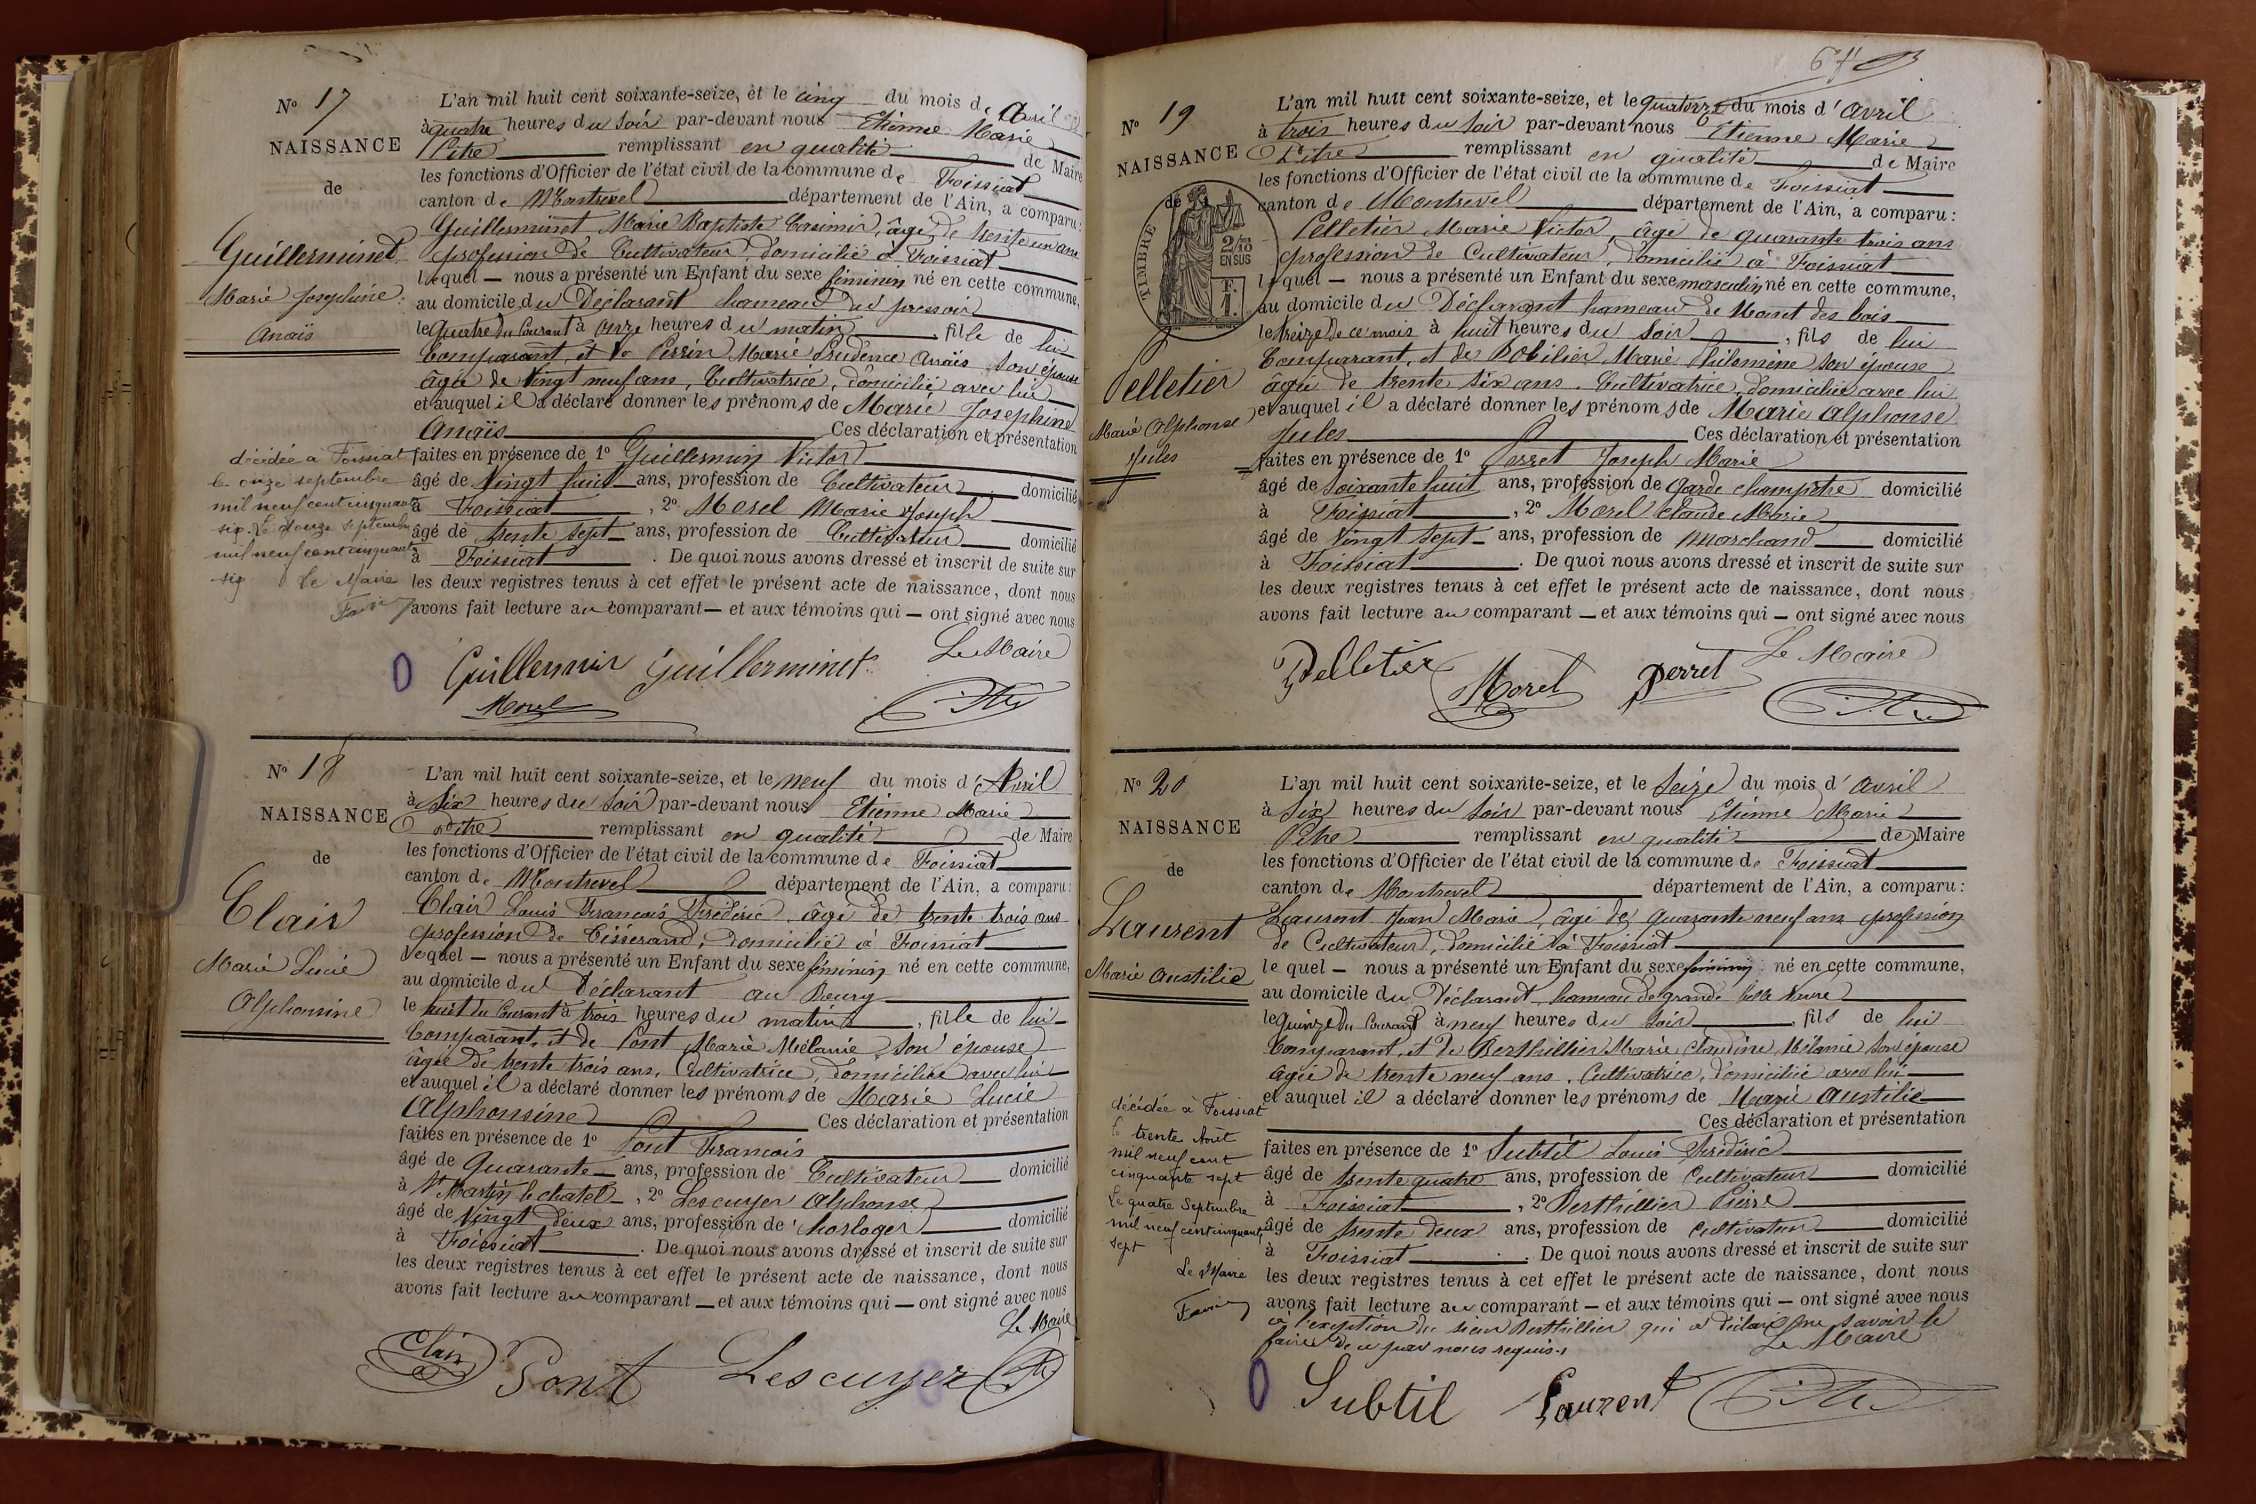 N° 17
NAISSANCE
de
Guillerminet
Marie Joséphine
Anaïs
L'an mil huit cent soixante-seize, et le cinq du mois d'Avril
à quatre heures du soir par-devant nous Etienne Marie
Pitre remplissant en qualité de Maire
les fonctions d'Officier de l'état civil de la commune de Foissiat
canton de Montrevel département de l'Ain, a comparu:
Guillerminet Marie Baptiste Casimir, âgé de trente un ans
profession de Cultivateur, domicilié à Foissiat
lequel — nous a présenté un Enfant du sexe féminin né en cette commune,
au domicile du Déclarant hameau du pressoir
le quatre du Courant à onze heures du matin, fille de lui
Comparant, et de Perrin Marie Prudence Anaïs son épouse
âgée de Vingt neuf ans, Cultivatrice, domicilié avec lui
et auquel il a déclaré donner les prénoms de Marie Joséphine
Anaïs Ces déclaration et présentation
faites en présence de 1° Guillermin Victor
âgé de Vingt huit ans, profession de Cultivateur domicilié
à Foissiat, 2° Morel Marie Joseph
âgé de trente sept ans, profession de Cultivateur domicilié
à Foissiat. De quoi nous avons dressé et inscrit de suite sur
les deux registres tenus à cet effet le présent acte de naissance, dont nous
avons fait lecture au comparant — et aux témoins qui — ont signé avec nous
Le Maire
Guillermin Guillerminet
Morel
décédée à Foissiat
le onze septembre
mil neuf cent cinquante
six. Le douze septembre
mil neuf cent cinquante
six Le Maire
N° 18
NAISSANCE
de
Clair
Marie Lucie
Alphonsine
L'an mil huit cent soixante-seize, et le neuf du mois d'Avril
à six heures du soir par-devant nous Etienne Marie
Pitre remplissant en qualité de Maire
les fonctions d'Officier de l'état civil de la commune de Foissiat
canton de Montrevel département de l'Ain, a comparu:
Clair Louis François Frédéric, âgé de trente trois ans
profession de Tisserand, domicilié à Foissiat
lequel — nous a présenté un Enfant du sexe féminin né en cette commune,
au domicile du Déclarant au Bourg
le huit du Courant à trois heures du matin, fille de lui
Comparant, et de Pont Marie Mélanie son épouse
âgée de trente trois ans, Cultivatrice, domiciliée avec lui
et auquel il a déclaré donner les prénoms de Marie Lucie
Alphonsine Ces déclaration et présentation
faites en présence de 1° Pont François
âgé de Quarante ans, profession de Cultivateur domicilié
à St Martin le chatel, 2° Lescuyer Alphonse
âgé de Vingt deux ans, profession de horloger domicilié
à Foissiat. De quoi nous avons dressé et inscrit de suite sur
les deux registres tenus à cet effet le présent acte de naissance, dont nous
avons fait lecture au comparant — et aux témoins qui — ont signé avec nous
Le Maire
Clair Pont Lescuyer
N° 19
NAISSANCE
de
TIMBRE
2/10
EN SUS
F.
1.
Pelletier
Marie Alphonse
Jules
L'an mil huit cent soixante-seize, et le quatorze du mois d'avril
à trois heures du soir par-devant nous Etienne Marie
Pitre remplissant en qualité de Maire
les fonctions d'Officier de l'état civil de la commune de Foissiat
canton de Montrevel département de l'Ain, a comparu:
Pelletier Marie Victor, âgé de quarante trois ans
profession de Cultivateur, domicilié à Foissiat
lequel — nous a présenté un Enfant du sexe masculin né en cette commune,
au domicile du Déclarant hameau de Mont des bois
le treize de ce mois à huit heures du soir, fils de lui
Comparant, et de Robilier Marie Philomène son épouse
âgée de trente six ans, Cultivatrice, domiciliée avec lui
et auquel il a déclaré donner les prénoms de Marie Alphonse
Jules Ces déclaration et présentation
faites en présence de 1° Perret Joseph Marie
âgé de soixante huit ans, profession de Garde champêtre domicilié
à Foissiat, 2° Morel Claude Marie
âgé de Vingt sept ans, profession de marchand domicilié
à Foissiat. De quoi nous avons dressé et inscrit de suite sur
les deux registres tenus à cet effet le présent acte de naissance, dont nous
avons fait lecture au comparant — et aux témoins qui — ont signé avec nous
Le Maire
Pelletier Morel Perret
N° 20
NAISSANCE
de
Laurent
Marie Austilie
L'an mil huit cent soixante-seize, et le seize du mois d'avril
à six heures du soir par-devant nous Etienne Marie
Pitre remplissant en qualité de Maire
les fonctions d'Officier de l'état civil de la commune de Foissiat
canton de Montrevel département de l'Ain, a comparu:
Laurent Jean Marie, âgé de quarante neuf ans profession
de Cultivateur, domicilié à Foissiat
lequel — nous a présenté un Enfant du sexe féminin né en cette commune,
au domicile du Déclarant, hameau de grande
le quinze du Courant à neuf heures du soir, fils de lui
Comparant, et de Berthillier Marie Claudine Mélanie son épouse
âgée de trente neuf ans, Cultivatrice, domiciliée avec lui
et auquel il a déclaré donner les prénoms de Marie Austilie
Ces déclaration et présentation
faites en présence de 1° Subtil Louis Frédéric
âgé de trente quatre ans, profession de Cultivateur domicilié
à Foissiat, 2° Berthillier Pierre
âgé de trente deux ans, profession de cultivateur domicilié
à Foissiat. De quoi nous avons dressé et inscrit de suite sur
les deux registres tenus à cet effet le présent acte de naissance, dont nous
avons fait lecture au comparant — et aux témoins qui — ont signé avec nous
à l'exeption du sieur Berthillier qui a déclaré ne savoir le
faire de ce par nous requis.
Le Maire
Subtil Laurent
décédée à Foissiat
le trente Août
mil neuf cent
cinquante sept
Le quatre Septembre
mil neuf cent cinquante
sept
Le Maire